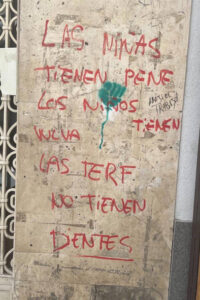 LAS NIÑAS
TIENEN PENE
LOS NIÑOS
TIENEN
VULVA
LAS TERF
NO TIENEN
DIENTES